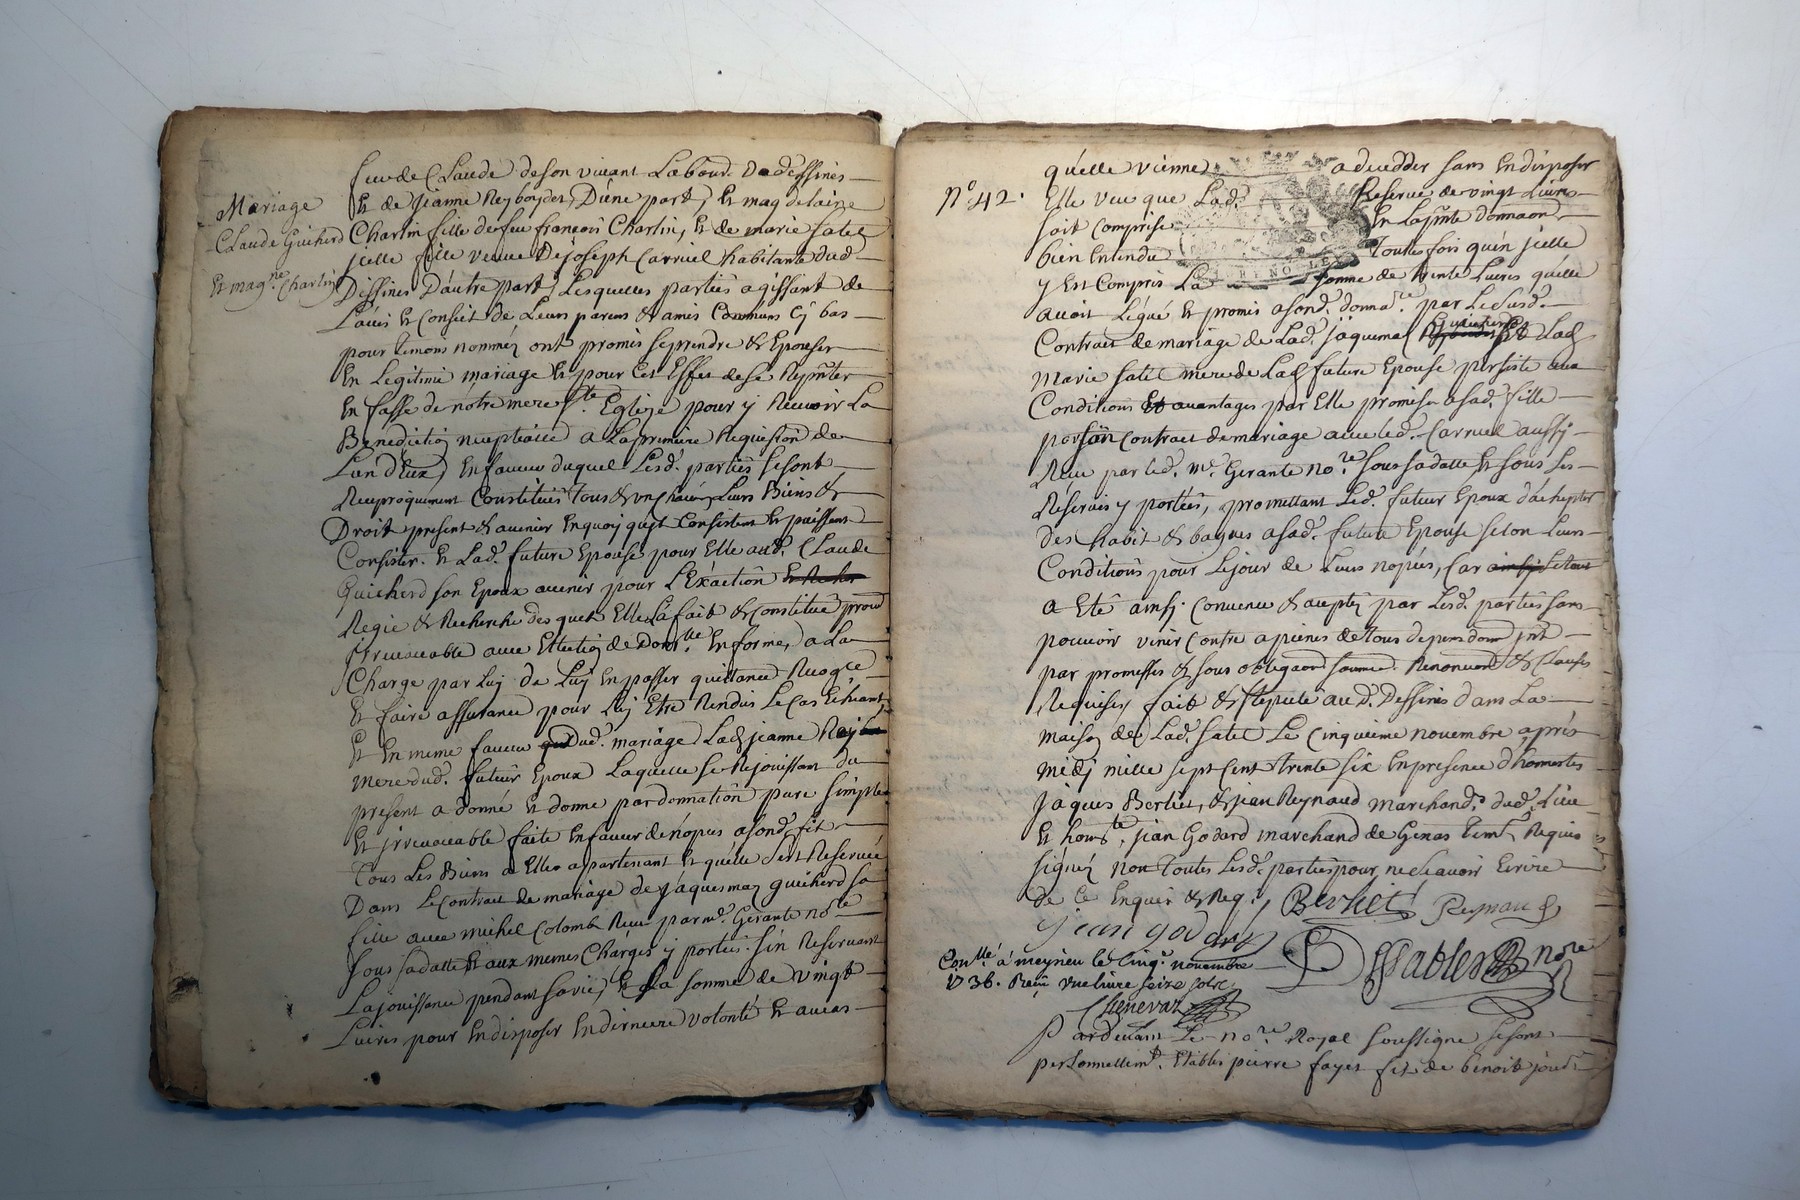 Mariage
Claude Guicherd
Et mag.ne Charlin
feu de Claude de son vivant Labour. Dud Dessines
Et de jeanne Reyboyder, D'une part, Et magdelaine
Charlin fille de feu françois Charlin, Et de marie Satel
jcelle fille veuve De joseph Carruel habitante dud
Dessines D'autre part, Lesquelles parties agissant de
L'avis Et Conseil de Leurs parens & amis Communs Cy bas
pour temoins nommez ont promis se prendre & Epouser
En Legitime mariage Et pour Cet Effet de se Rep̃nter
En fasse de notre mere Ste. Eglize pour y Recevoir La
Benediction nuptialle a La premiere Requisition de
L'un D'Eux, En faveur duquel Lesd. parties se sont
Reciproquement Constitués Tous & un Chacun Leurs Biens &
Droit present & avenir En quoy qu'jls Consistent Et puissent
Consister. Et Lad. future Epouse pour Elle aud. Claude
Guicherd son Epoux avenir pour L'Exaction
Regie & Recherche desquels Elle L'a fait & Constitué pro.
jrrevocable avec Election de Dom.lle En forme, a La
Charge par Luy de Luy En passer quittance Recog.ce
Et faire assurance pour Luy Etre Rendus Le Cas Echeant,
Et En meme faveur dud. mariage Lad jeanne Rey
mere dud. futeur Epoux Laquelle se Rejouissant du
present a donné Et donne par donnation pure simple
Et jrrevocable faite En faveur de nopces a sond. fils
Tous Les Biens a Elle appartenant Et qu'elle s'est Reservée
Dans Le Contrat de mariage de Jaquemaz Guicherd sa
fille avec michel Colomb Receu par me. Gerante no.re
sous sa datte Et aux memes Charges y portées. s'en Reservant
La jouissance pendant sa vie, Et La somme de vingt
Livres pour En disposer En derniere volonté Et au cas
N.o 42.
qu'elle vienne a deceder sans En disposer
Elle veu que Lad. Reserve de vingt Livres
soit Comprise En La p̃nte donnaon,
bien Entendu Toutes fois qu'en jcelle
y Est Compris La somme de trente Livres qu'elle
avoit Légué Et promis a sond. donna.re par Le susd.
Contrait de mariage de Lad. jaquemaz Guicherd Et Lad
Marie Satel mere de Lad future Epouse persiste aux
Conditions Et avantages par Elle promises a sad. fille
par son Contract de mariage avec led. Carruel aussy
Receu par led. me. Gerante no.re sous sa datte Et sous Les
Réserves y portées, promettant Led. futur Epoux d'achepter
des habit & bagues a sad. future Epouse selon Leurs
Conditions pour Le jour de Leurs nopces, Car
a Eté ainsy Convenu & accepté par Lesd. parties sans
pouvoir venir Contre a peines de tous depens dom. jnt
par promesses & sous obligaon soumis. Renonciaon & Clauses
Requises, fait & stipulé aud. Dessines dans La
maison de Lad. Satel Le Cinquieme novembre après
midy mille sept Cent trente six En presence d'honnestes
Jaques Berliet, & jean Reynaud marchand.s dud. Lieu
Et hon.te, jean Godard marchand de Genas temt. Requis
signez non Toutes Lesd. parties pour ne sçavoir Ecrire
de Ce Enquis & Req.s
Berliet Reynaud
jean godard
Dessables no.re
Con.llé a meyrieu le Cinq.e novembre
1736. Reçu une livre seize sols
Chenevaz
Par devant Le no.re Royal Soussigné se sont
personnellem.t Etablis pierre fayet fils de benoit joud.